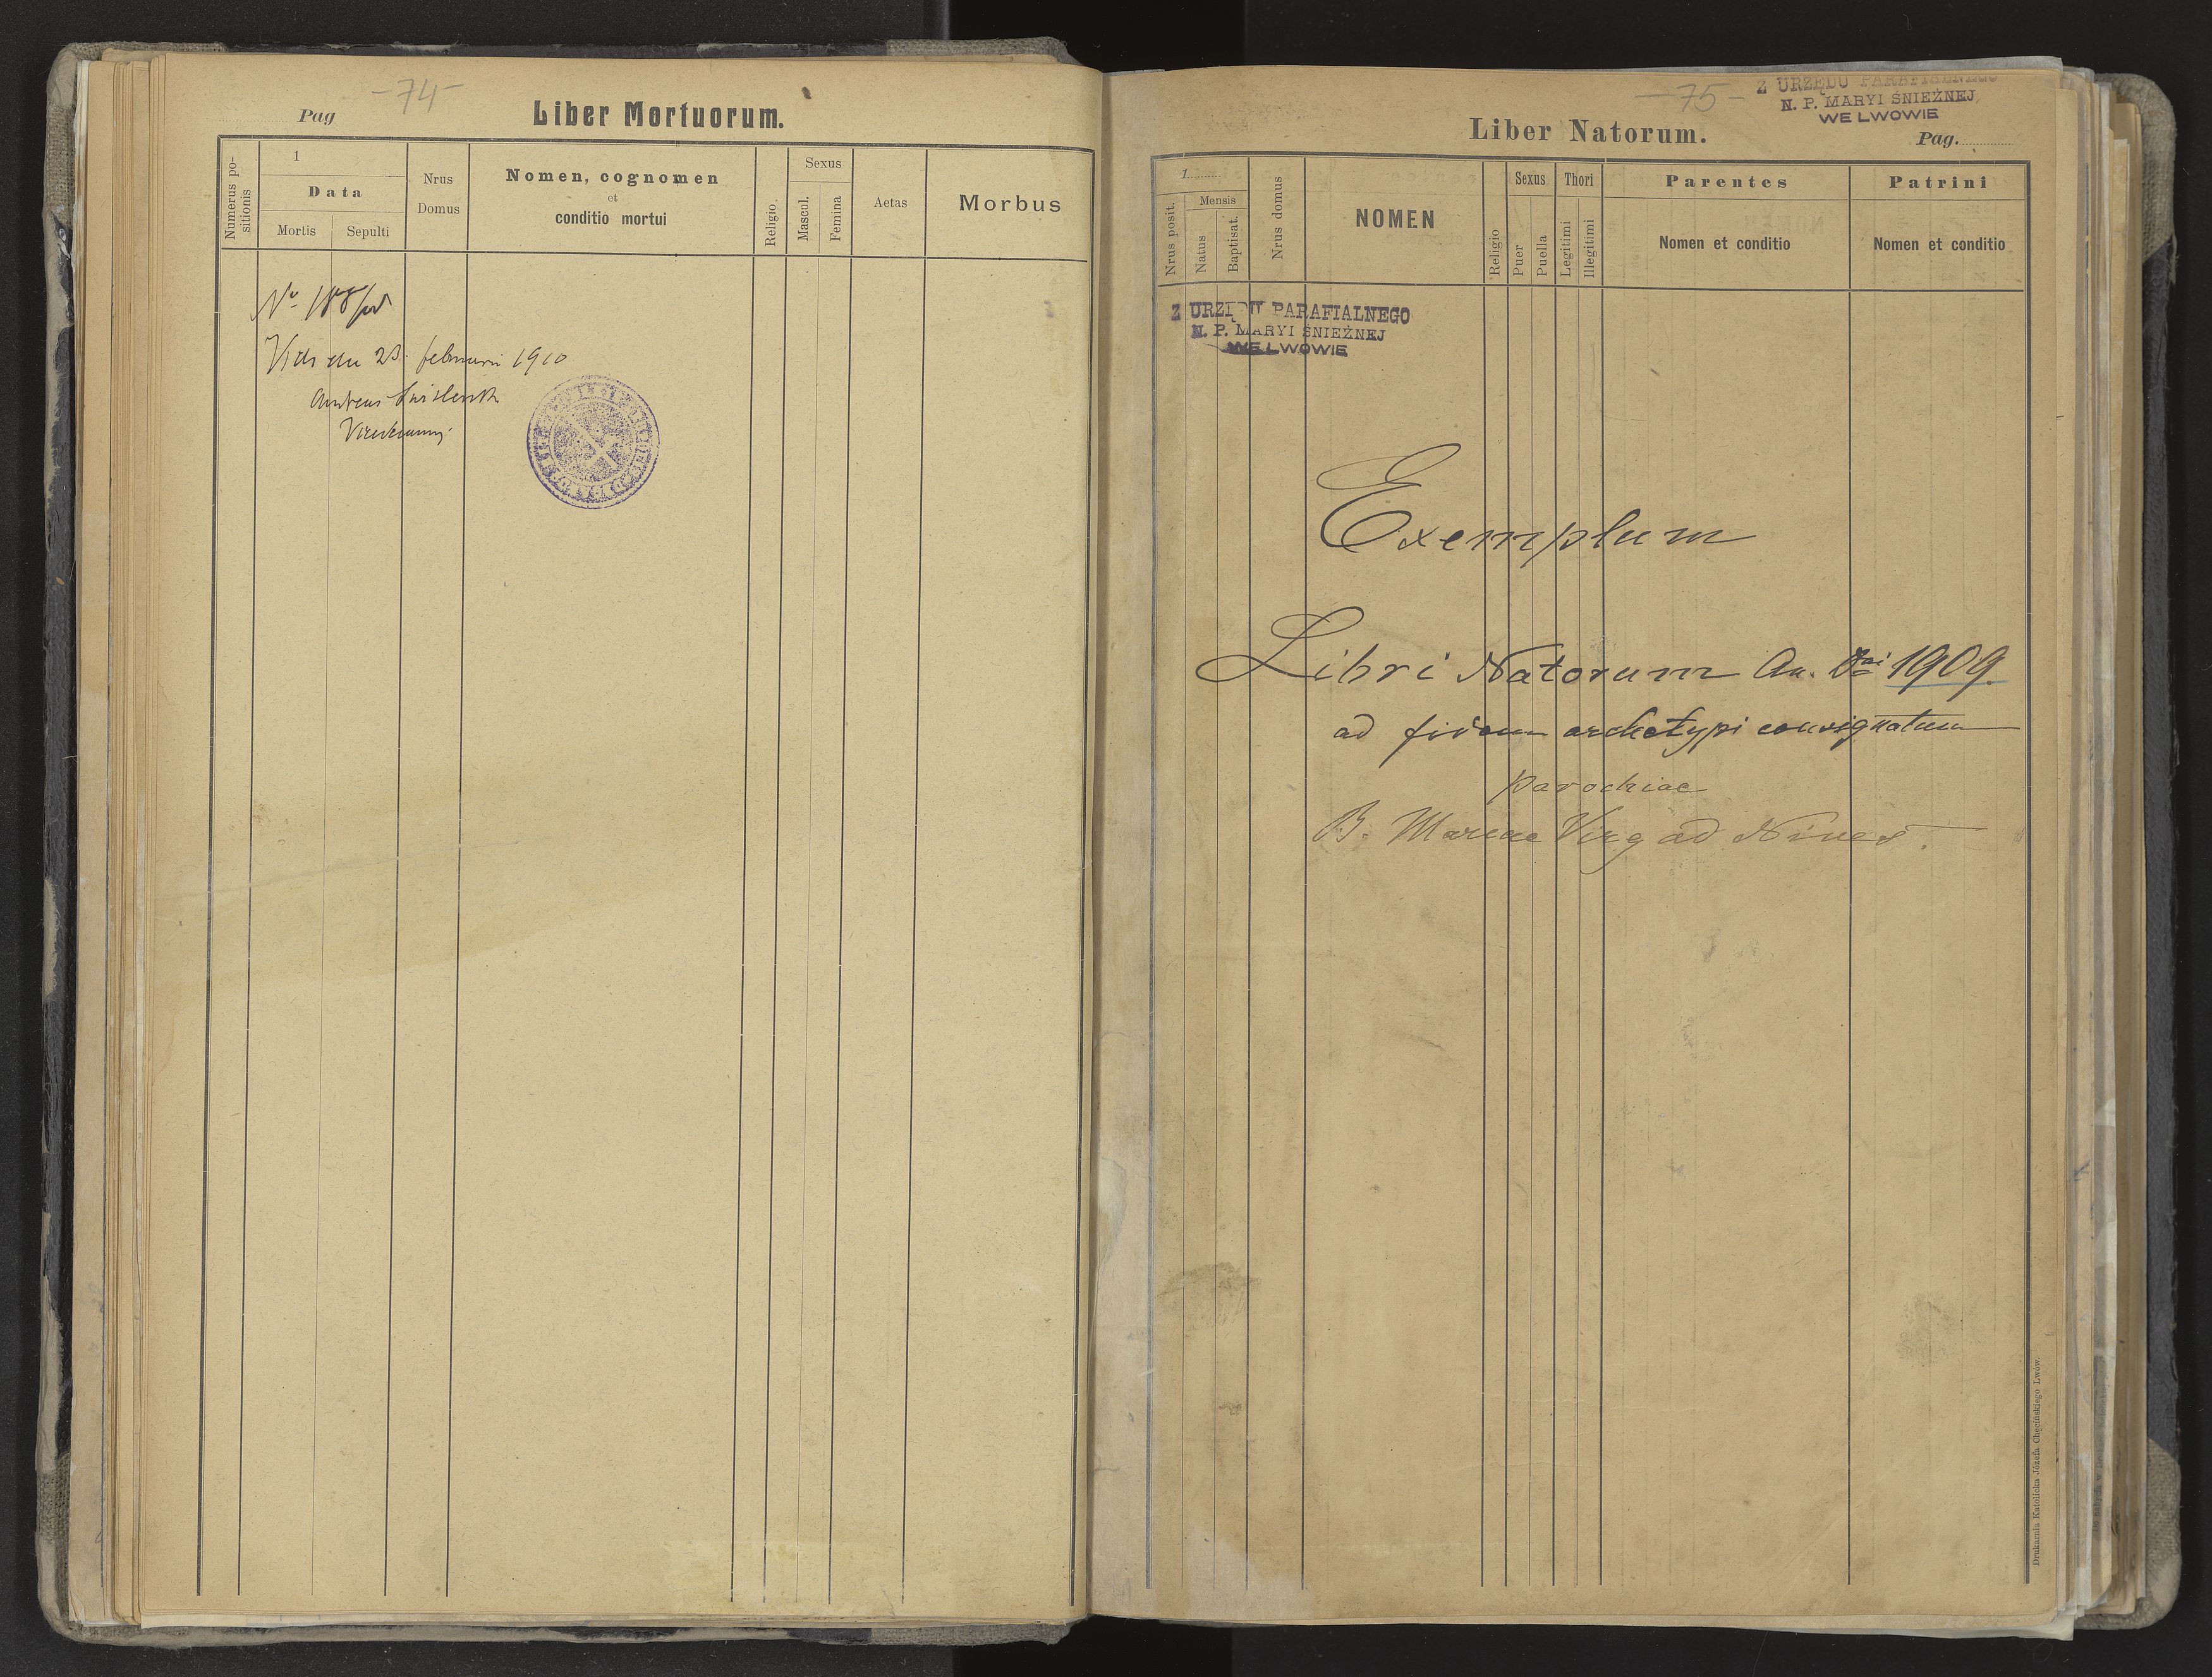 -74-
Pag
Liber Mortuorum.
Numerus positionis
1
Data
Mortis
Sepulti
Nrus Domus
Nomen, cognomen
et
conditio mortui
Religio
Sexus
Mascul.
Femina
Aetas
Morbus
Nº 188/
Vidi die 23 februarii 1910
Andreas
-75-
Z URZĘDU PARAFIALNEGO
N. P. MARYI ŚNIEŻNEJ
WE LWOWIE
Liber Natorum.
Pag.
Nrus posit.
1
Mensis
Natus
Baptisat.
Nrus domus
NOMEN
Religio
Sexus
Puer
Puella
Thori
Legitimi
Illegitimi
Parentes
Nomen et conditio
Patrini
Nomen et conditio
Z URZĘDU PARAFIALNEGO
N. P. MARYI ŚNIEŻNEJ
WE LWOWIE
Exemplum
Libri Natorum An. Dni 1909.
ad fidem archetypi consignatum
parochiae
B. Mariae Virg ad Nives.
Drukarnia Katolicka Józefa Chęcińskiego Lwów.